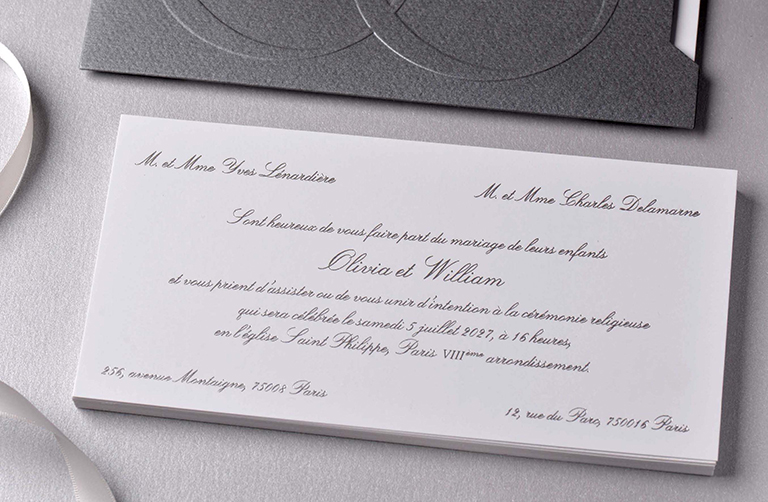 M. et Mme Yves Lénardière
M. et Mme Charles Delamarne
Sont heureux de vous faire part du mariage de leurs enfants
Olivia et William
et vous prient d'assister ou de vous unir d'intention à la cérémonie religieuse
qui sera célébrée le samedi 5 juillet 2027, à 16 heures,
en l'église Saint Philippe, Paris VIIIème arrondissement.
256, avenue Montaigne, 75008 Paris
12, rue du Parc, 750016 Paris